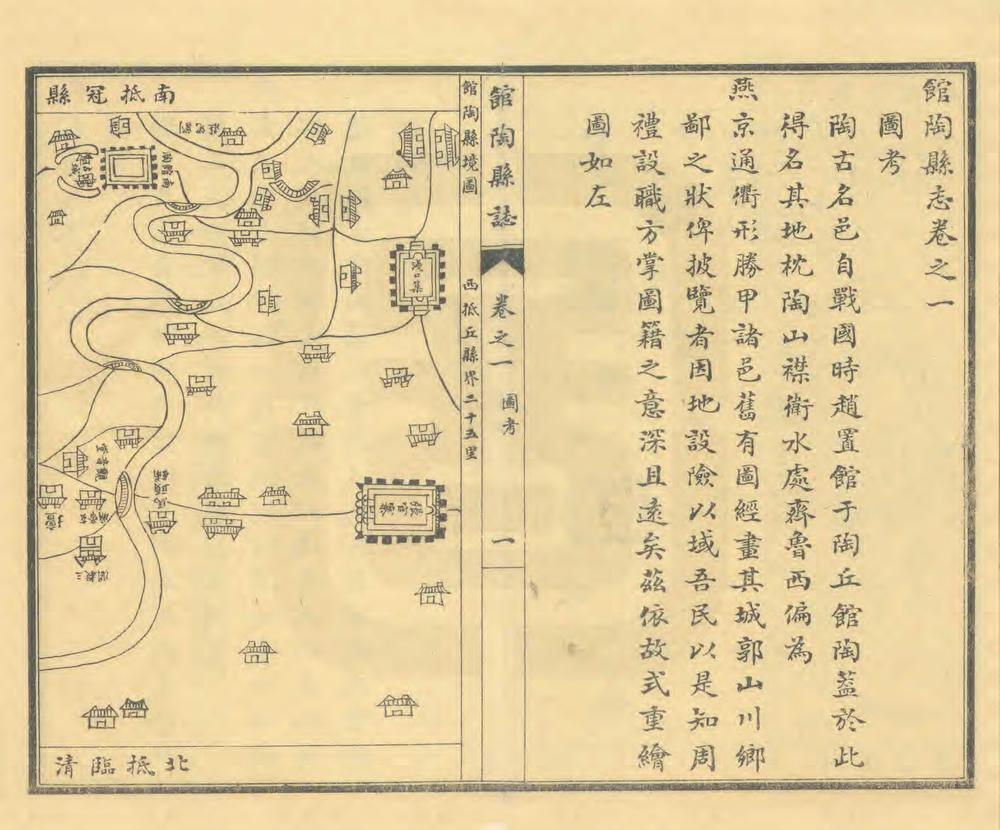 館陶縣志卷之一
圖考
陶古名邑自戰國時趙置館于陶丘館陶蓋於此
得名其地枕陶山襟衛水處齊魯西偏為
燕京通衢形勝甲諸邑舊有圖經畫其城郭山川鄉
鄙之狀俾披覽者因地設險以域吾民以是知周
禮設職方掌圖籍之意深且遠矣茲依故式重繪
圖如左
館陶縣誌
卷之一
圖考
一
館陶縣境圖
西抵丘縣界二十五里
南抵冠縣
南館陶
淺口集
觀音堂
馬頭鋪
三教閣
北抵臨清